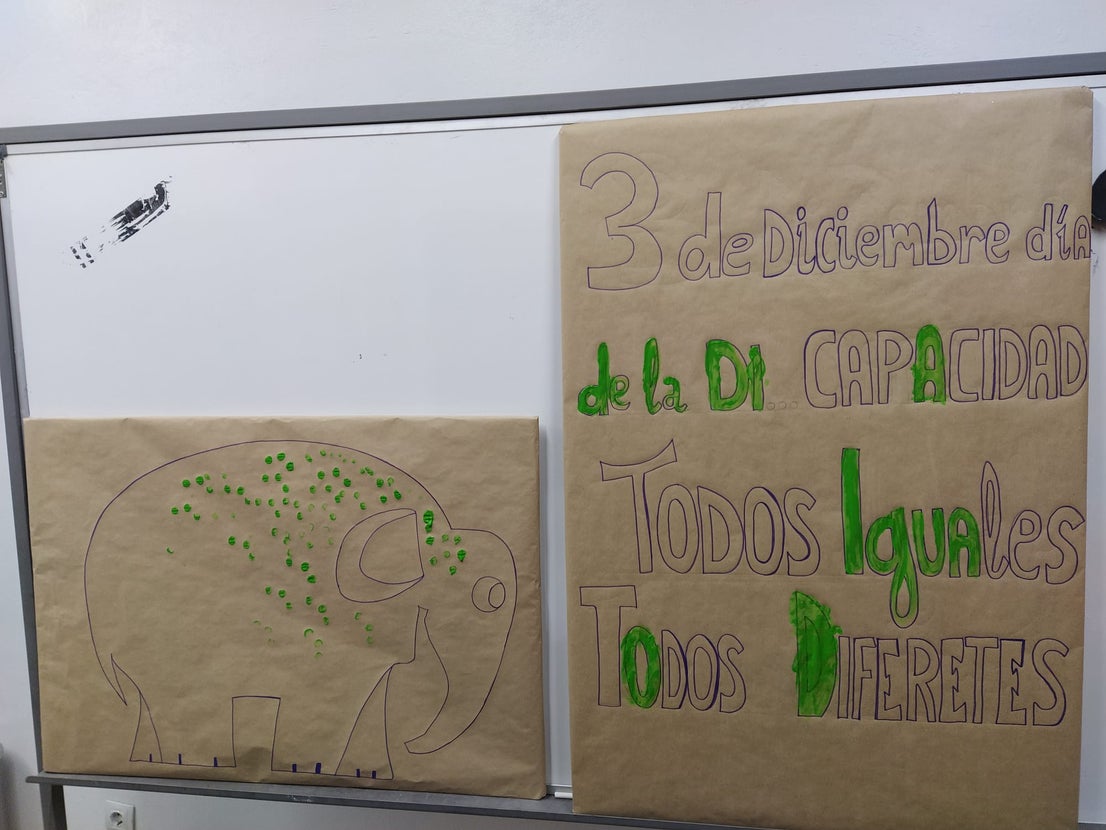 3 de Diciembre día
de la Di... CAPACIDAD
TODOS IguAles
TODOS DIFERETES